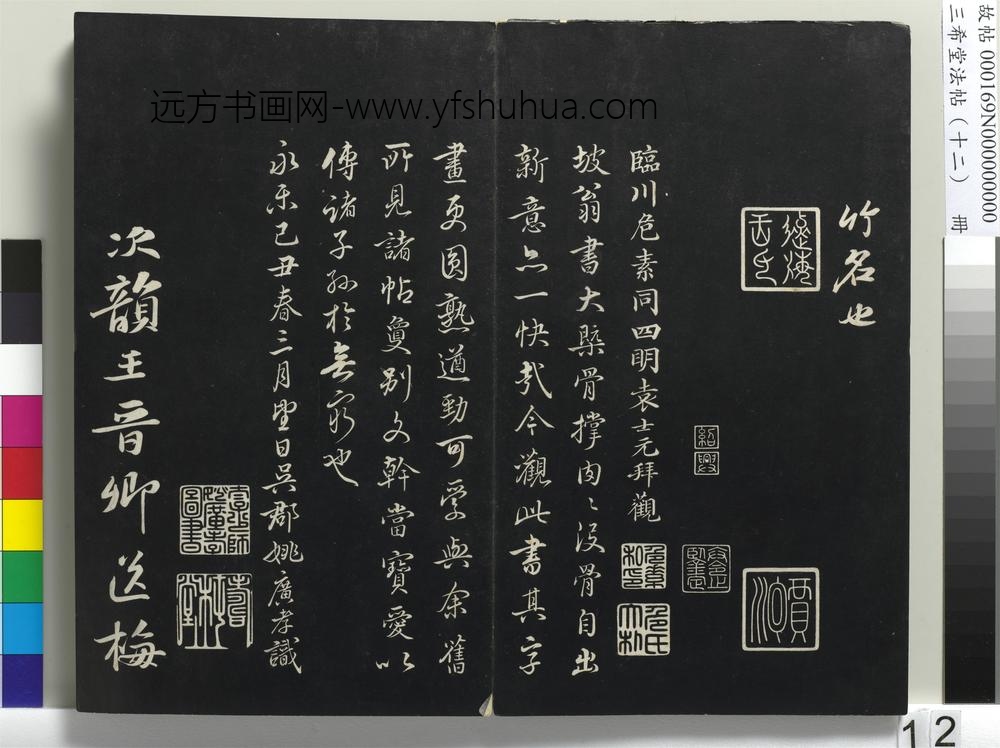 竹名也
臨川危素同四明袁士元拜觀
坡翁書大槩骨撑肉〻没骨自出
新意亦一快哉今觀此書其字
畫更圓熟遒勁可愛與余舊
所見諸帖敻别文幹當寶愛以
傳諸子孫於無窮也
永乐己丑春三月望日吳郡姚廣孝識
次韻王晋卿送梅
紹興
賈
危氏
远方书画网-www.yfshuhua.com
故帖 000169N000000000
三希堂法帖（十二） 冊
12